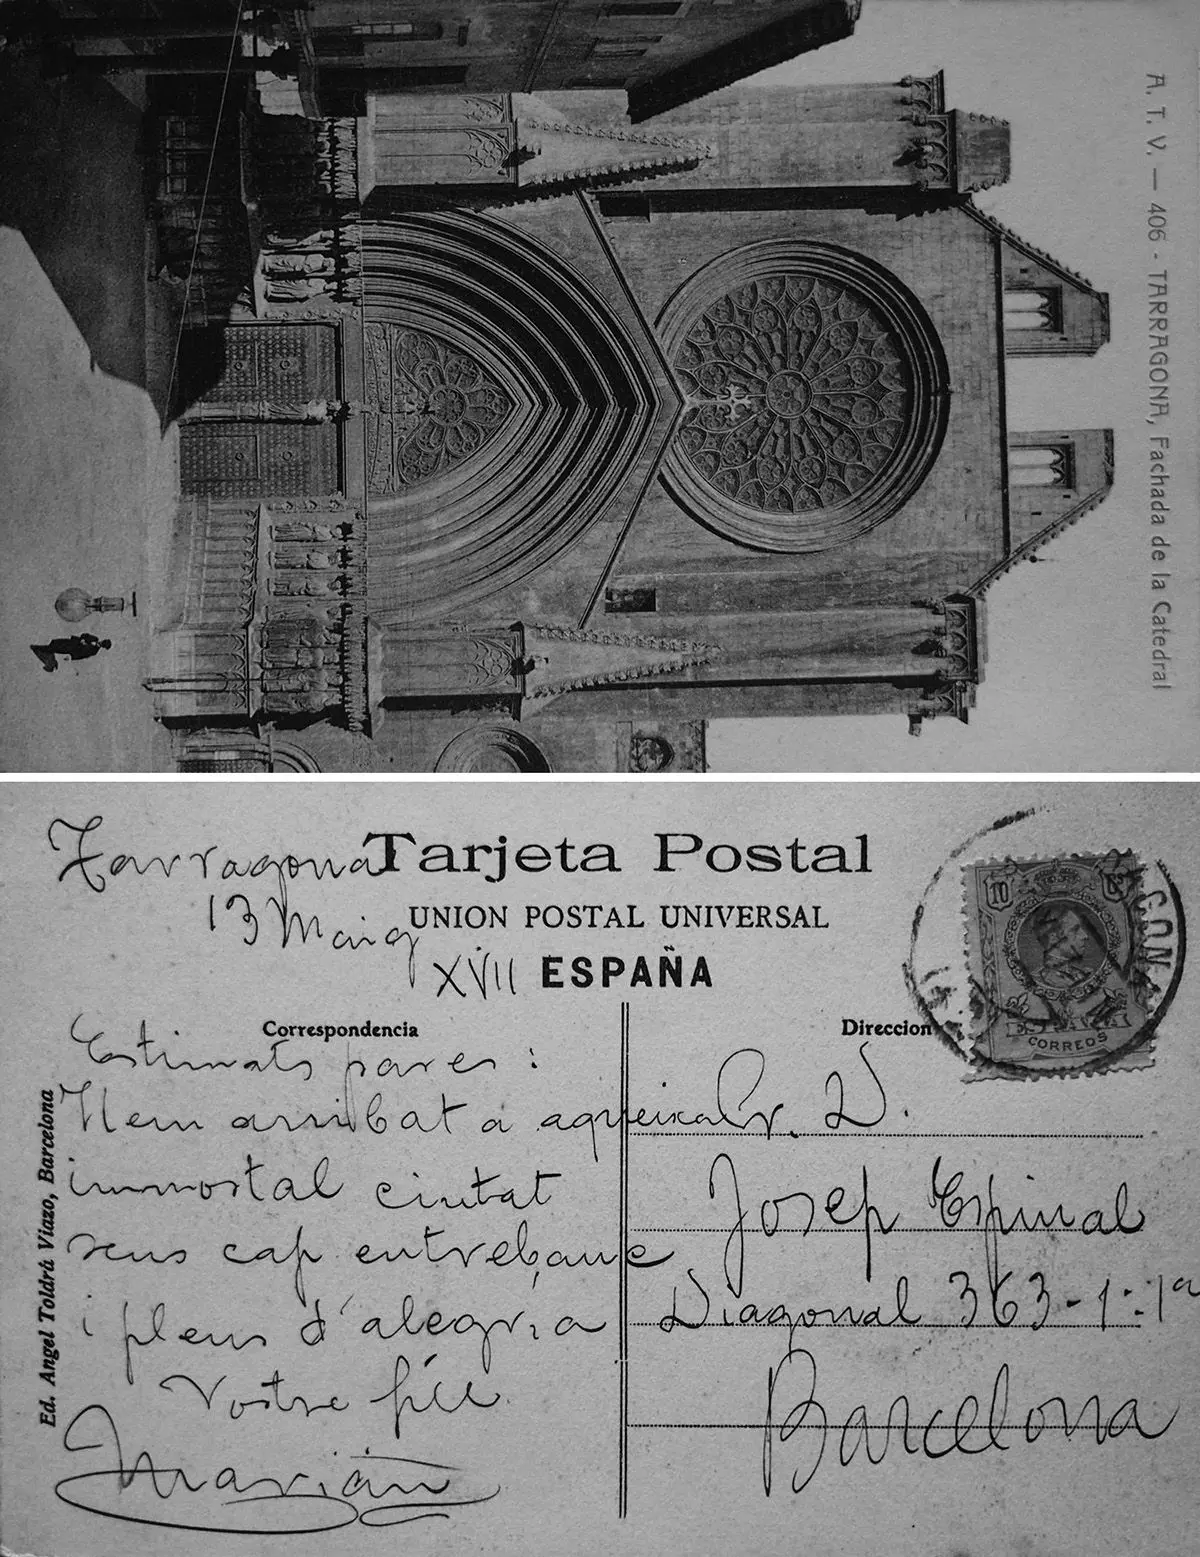 A. T. V. — 406 - TARRAGONA, Fachada de la Catedral
Tarjeta Postal
UNION POSTAL UNIVERSAL
ESPAÑA
Tarragona
13 Maig
XVII
Correspondencia
Estimats pares:
Hem arribat a aqueixa
immortal ciutat
sens cap entrebanc
i plens d'alegria
Vostre fill
Marián
Ed. Angel Toldrá Viazo, Barcelona
Direccion
Sr. D.
Josep Espinal
Diagonal 363-1:-1a
Barcelona
10
ESPAÑA
CORREOS